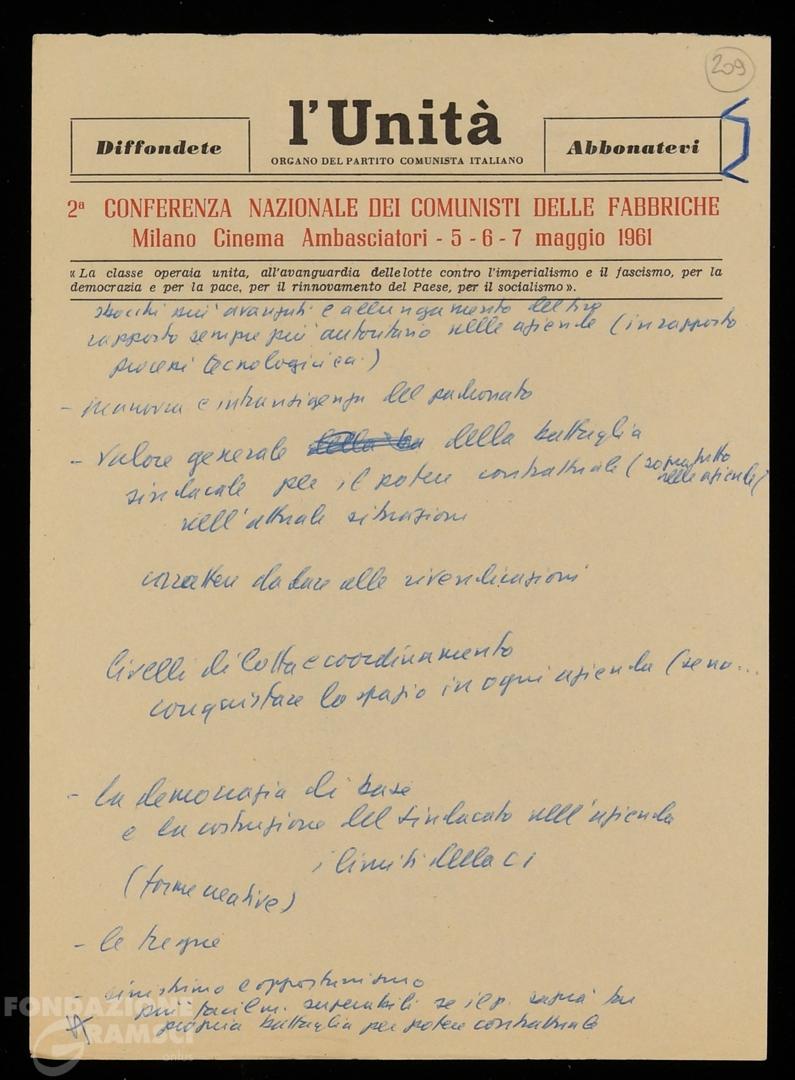 209
Diffondete
l'Unità
ORGANO DEL PARTITO COMUNISTA ITALIANO
Abbonatevi
2ª CONFERENZA NAZIONALE DEI COMUNISTI DELLE FABBRICHE
Milano Cinema Ambasciatori - 5 - 6 - 7 maggio 1961
« La classe operaia unita, all'avanguardia delle lotte contro l'imperialismo e il fascismo, per la
democrazia e per la pace, per il rinnovamento del Paese, per il socialismo ».
sbocchi più avanzati e allungamento del tiro
rapporto sempre più autoritario nelle aziende (in rapporto
processi tecnologici)
- manovra e intransigenza del padronato
- Valore generale della battaglia
sindacale per il potere contrattuale (soprattutto
nelle aziende)
nell'attuale situazione
carattere da dare alle rivendicazioni
Livelli di lotta e coordinamento
conquistare lo spazio in ogni azienda (se no...
- la democrazia di base
e la costruzione del sindacato nell'azienda
i limiti della CI
(forme creative)
- le tregue
- sinistrismo e opportunismo
più facilm. superabili se il p. saprà
propria battaglia per potere contrattuale
FONDAZIONE
GRAMSCI
onlus